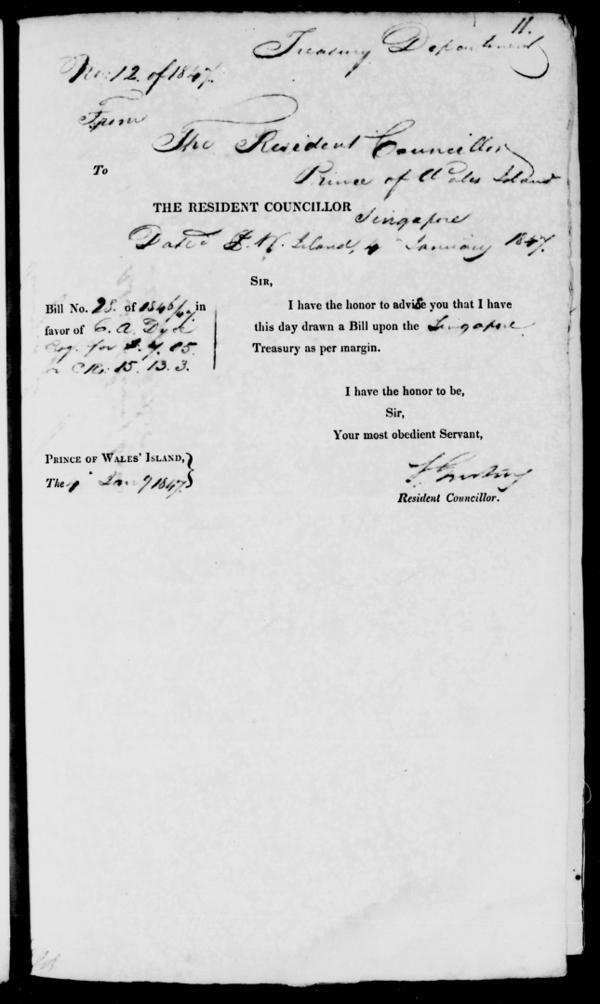 11.
Treasury Department
No. 12 of 1847.
From
The Resident Councillor
Prince of Wales Island
To
THE RESIDENT COUNCILLOR
Singapore
Dated P. W. Island, 4 January 1847.
SIR,
Bill No. 28. of 1846/47 in
favor of C. A. Dyce
Esq. for
Co Rs. 15. 13. 3.
I have the honor to advise you that I have
this day drawn a Bill upon the Singapore
Treasury as per margin.
I have the honor to be,
Sir,
Your most obedient Servant,
PRINCE OF WALES' ISLAND,
The 4 Jany 1847.
Resident Councillor.